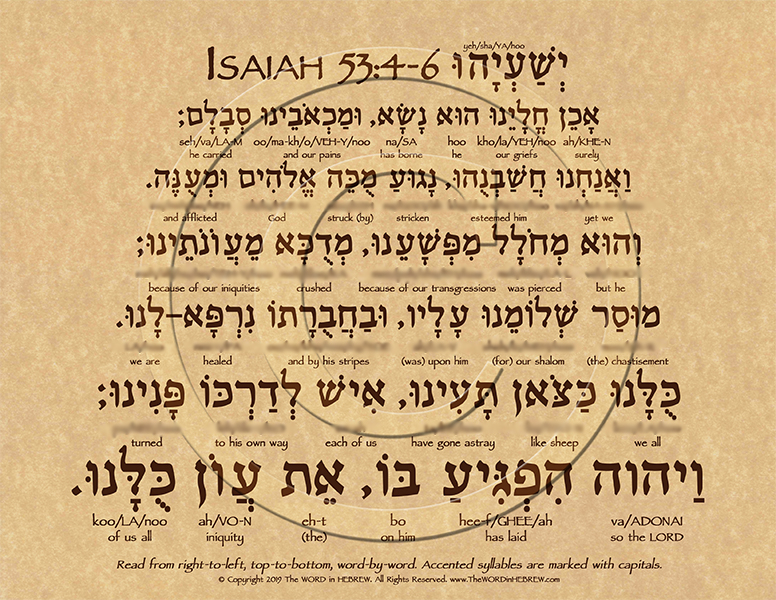 yeh/sha/YA/hoo
ISAIAH 53:4-6 יְשַׁעְיָהוּ
אָכֵן חֳלָיֵנוּ הוּא נָשָׂא, וּמַכְאֹבֵינוּ סְבָלָם;
seh/va/LA-M oo/ma-kh/o/VEH-Y/noo na/SA hoo kho/la/YEH/noo ah/KHE-N
he carried and our pains has borne he our griefs surely
וַאֲנַחְנוּ חֲשַׁבְנֻהוּ, נָגוּעַ מֻכֵּה אֱלֹהִים וּמְעֻנֶּה.
and afflicted God struck (by) stricken esteemed him yet we
וְהוּא מְחֹלָל מִפְּשָׁעֵנוּ, מְדֻכָּא מֵעֲוֹנֹתֵינוּ;
because of our iniquities crushed because of our transgressions was pierced but he
מוּסַר שְׁלוֹמֵנוּ עָלָיו, וּבַחֲבֻרָתוֹ נִרְפָּא–לָנוּ.
we are healed and by his stripes (was) upon him (for) our shalom (the) chastisement
כֻּלָּנוּ כַּצֹּאן תָּעִינוּ, אִישׁ לְדַרְכּוֹ פָּנִינוּ;
turned to his own way each of us have gone astray like sheep we all
וַיהוה הִפְגִּיעַ בּוֹ, אֵת עֲוֹן כֻּלָּנוּ.
koo/LA/noo ah/VO-N eh-t bo hee-f/GHEE/ah va/ADONAI
of us all iniquity (the) on him has laid so the LORD
Read from right-to-left, top-to-bottom, word-by-word. Accented syllables are marked with capitals.
© Copyright 2019 The WORD in HEBREW. All Rights Reserved. www.TheWORDinHEBREW.com